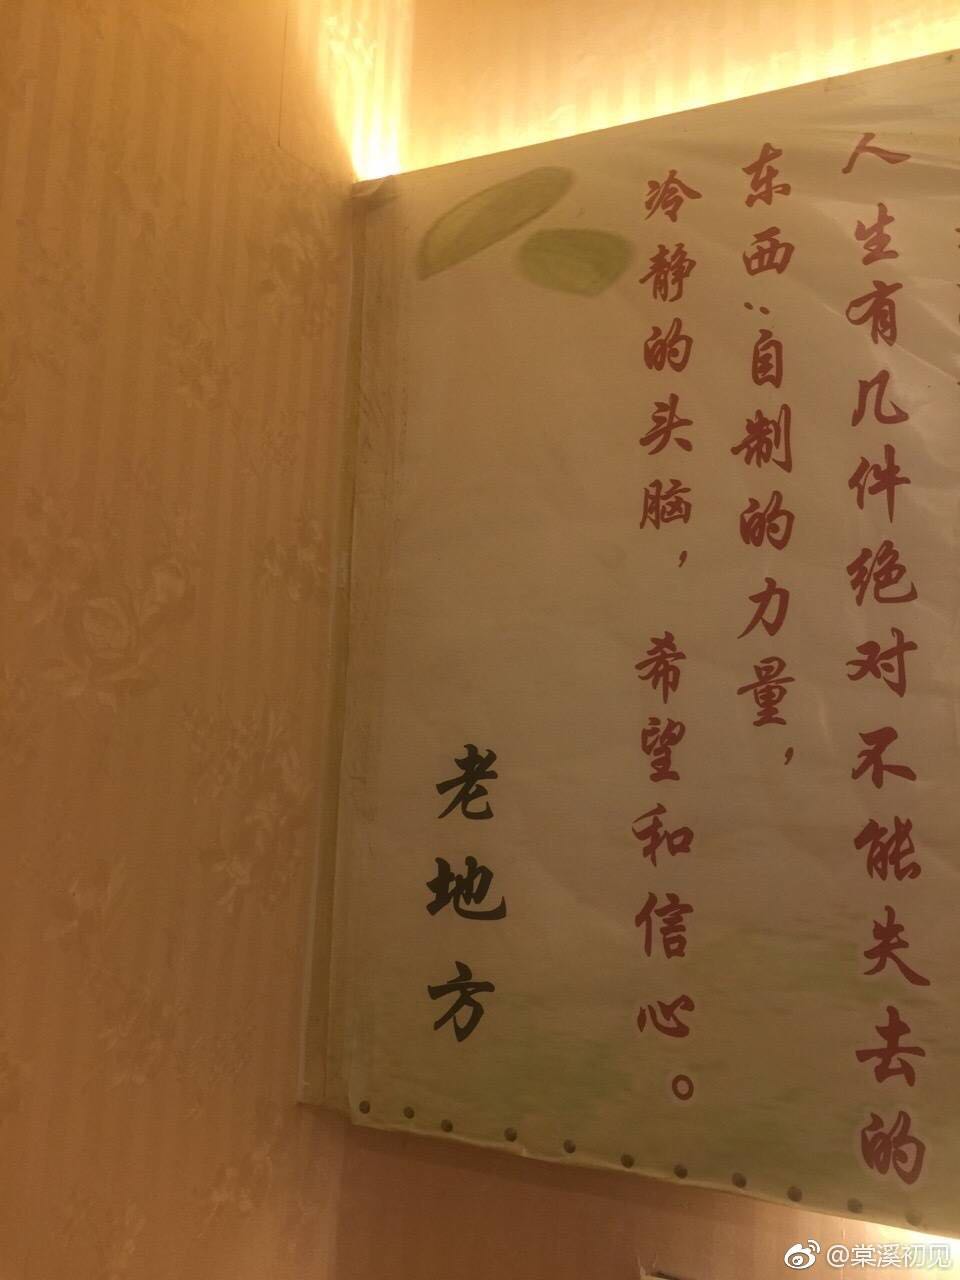 人生有几件绝对不能失去的
东西:自制的力量,
冷静的头脑,希望和信心。
老地方
@棠溪初见